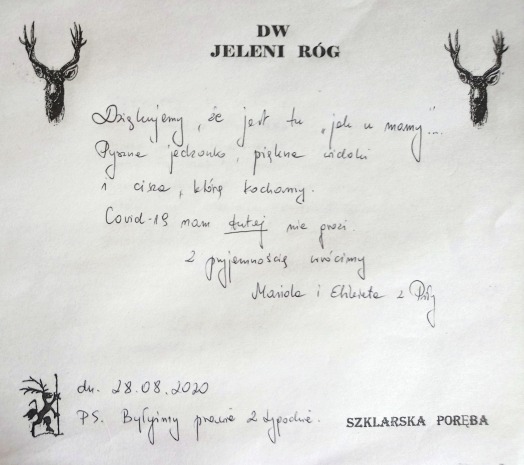 DW
JELENI RÓG
Dziękujemy, że jest tu „jak u mamy"...
Pyszne jedzonko, piękne widoki
i cisza, którą kochamy.
Covid-19 nam tutaj nie grozi.
Z przyjemnością wrócimy
Mariola i Elżbieta z
dn. 28.08.2020
PS. Byłyśmy prawie 2 tygodnie.
SZKLARSKA PORĘBA